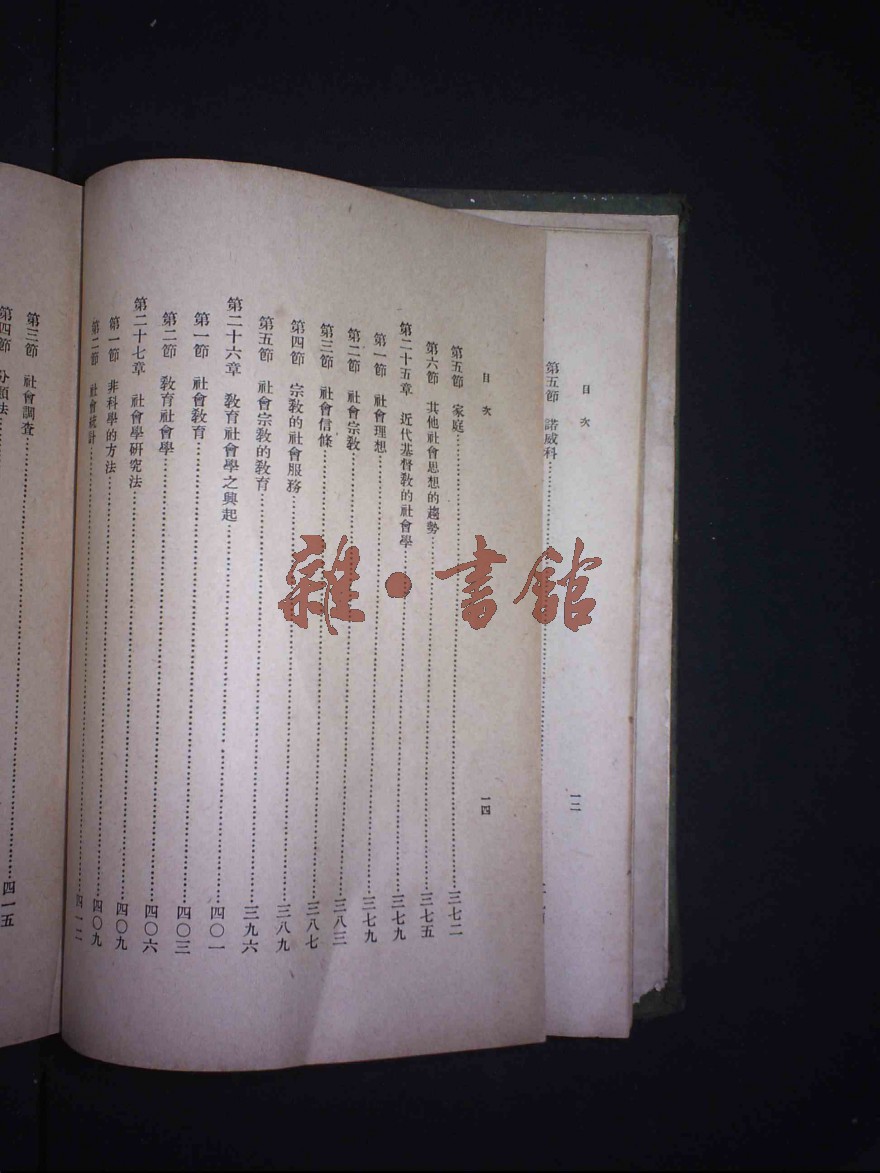 目次 一二
第五節 諾威科……
目次 一四
第五節 家庭……三七二
第六節 其他社會思想的趨勢……三七五
第二十五章 近代基督教的社會學……三七九
第一節 社會理想……三七九
第二節 社會宗教……三八三
第三節 社會信條……三八七
第四節 宗教的社會服務……三八九
第五節 社會宗教的教育……三九六
第二十六章 教育社會學之興起……四〇一
第一節 社會教育……四〇三
第二節 教育社會學……四〇六
第二十七章 社會學研究法……四〇九
第一節 非科學的方法……四〇九
第二節 社會統計……四一二
第三節 社會調查……四一五
第四節 分類法……
雜·書館